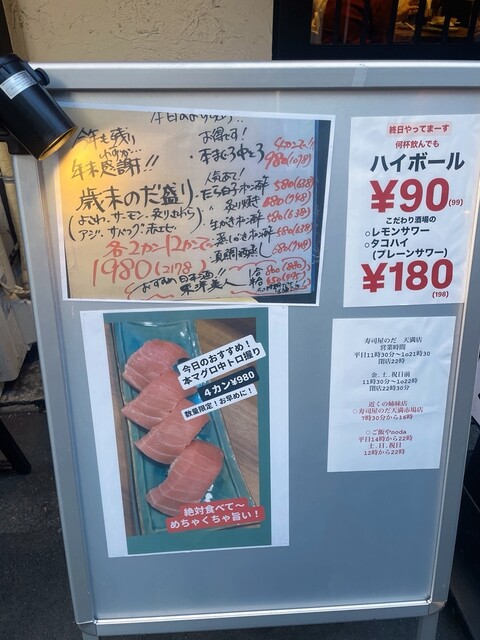 本日のおすすめ
今年も残り
わずか…
年末感謝!!
歳末のだ盛り
(よこわ.サーモン.炙りさわら)
アジ.サバ.つぶ.赤エビ
各2カン 12カンで…
1980(2178)
お得です!
・本まぐろ中とろ 4カンで!! 980(1078)
人気あり!
たら白子ポン酢 580(638)
〃 炙り焼き 680(748)
生がきポン酢 580(638)
蒸しがきポン酢 580(638)
真鯛酒蒸し 680(748)
おすすめ日本酒!!
東洋美人
終日やってまーす
何杯飲んでも
ハイボール
¥90(99)
こだわり酒場の
○レモンサワー
○タコハイ
(プレーンサワー)
¥180
(198)
今日のおすすめ!
本マグロ中トロ握り
4カン¥980
数量限定!お早めに!
絶対食べて〜
めちゃくちゃ旨い!
寿司屋のだ 天満店
営業時間
平日11時30分〜lo21時30
閉店22時
金.土.祝日前
11時30分〜lo22時
閉店22時30分
近くの姉妹店
○寿司屋のだ天満市場店
7時30分から16時
○ご飯やnoda
平日14時から22時
土.日.祝日
12時から22時